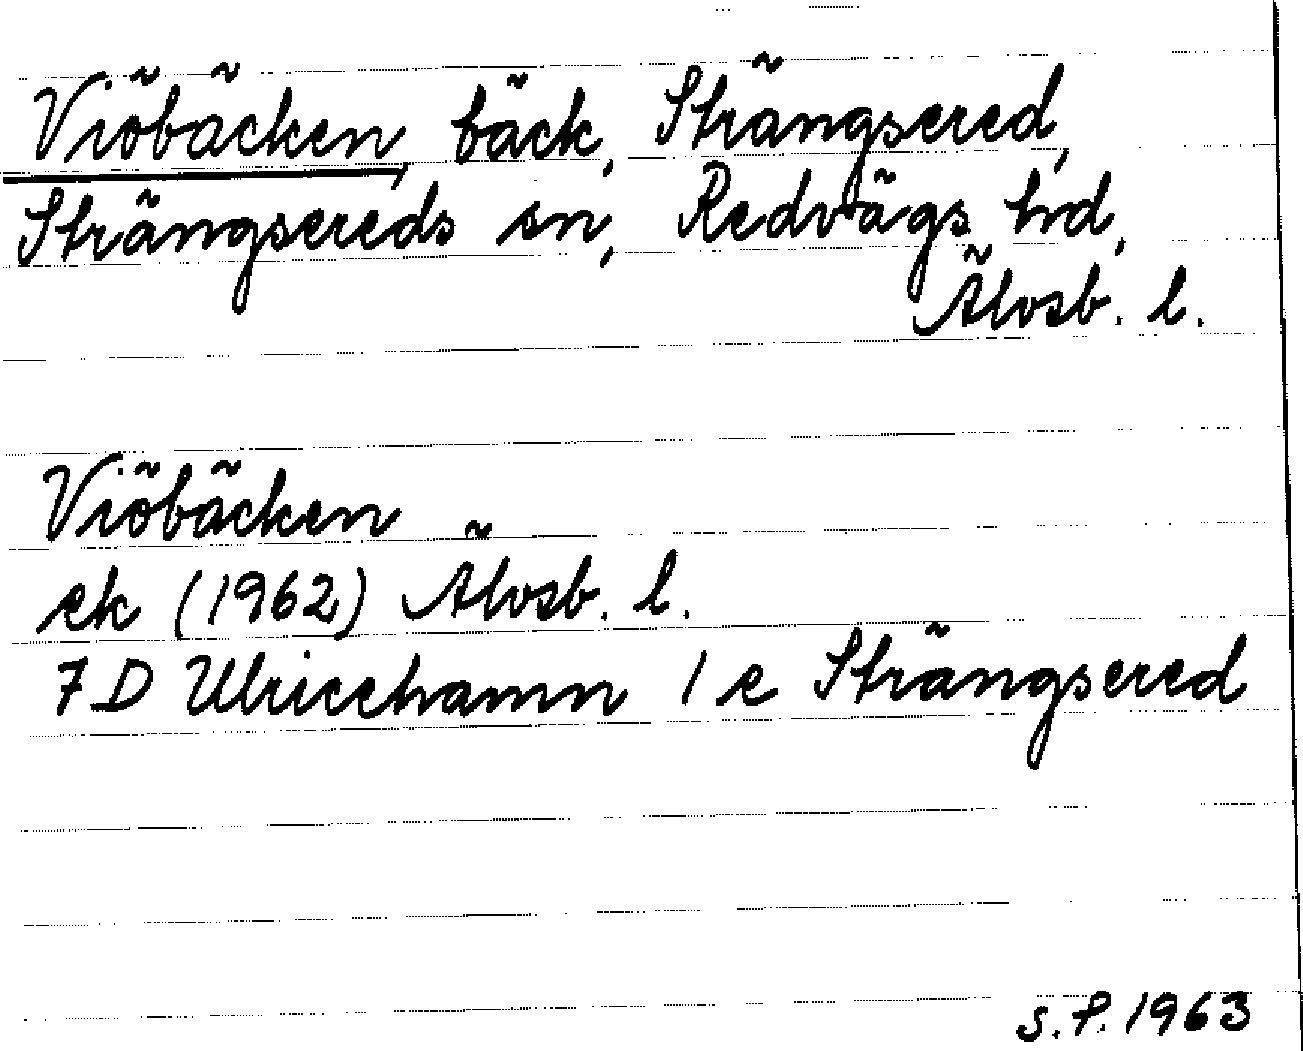 Viöbäcken, bäck, Strängsered,
Strängsereds sn, Redvägs hd,
Älvsb. l.
Viöbäcken
ek (1962) Älvsb. l.
7D Ulricehamn 1 e Strängsered
S.P. 1963